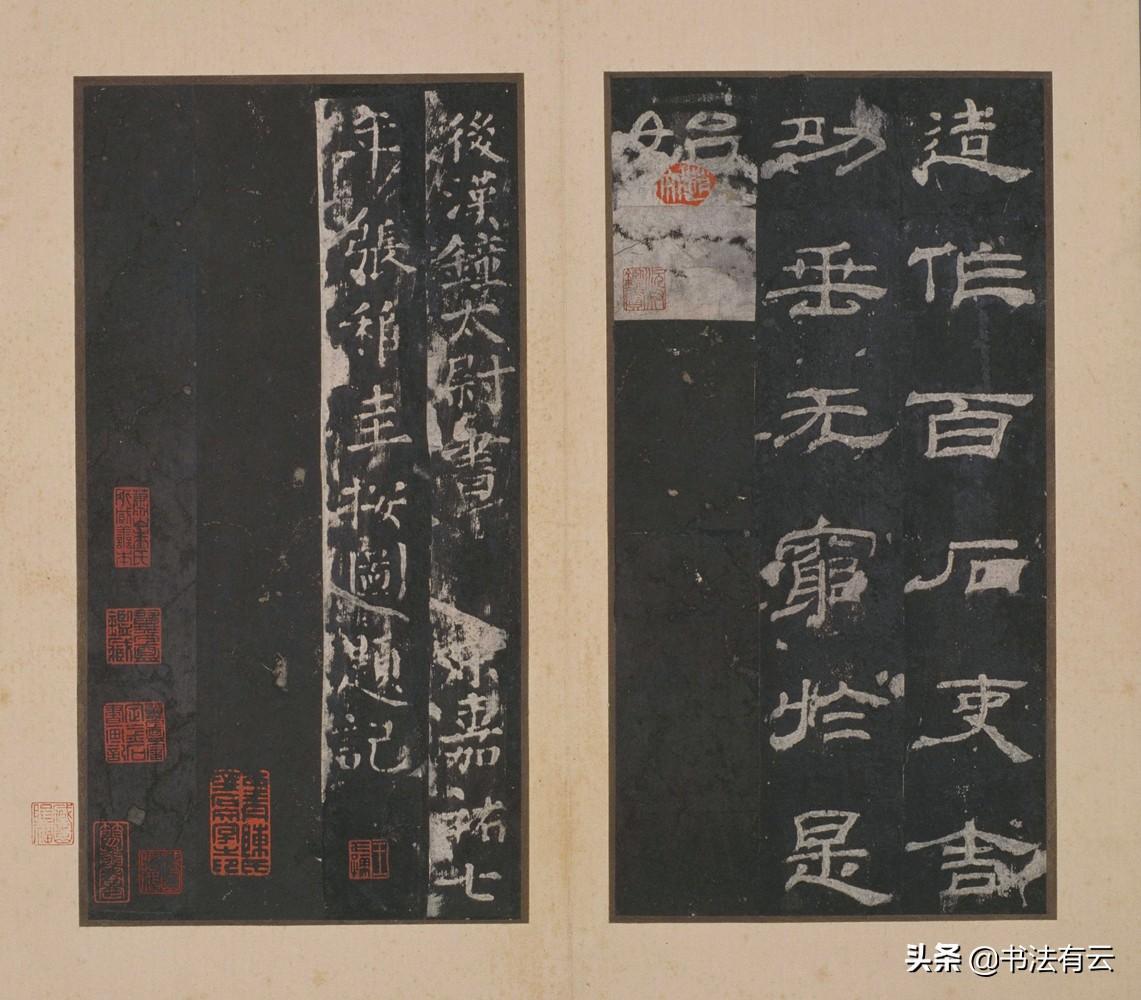 造作百石吏舍
功垂无窮於是
始
後漢鍾太尉書 宋嘉祐七
年張稚圭按圖題記
头条 @书法有云